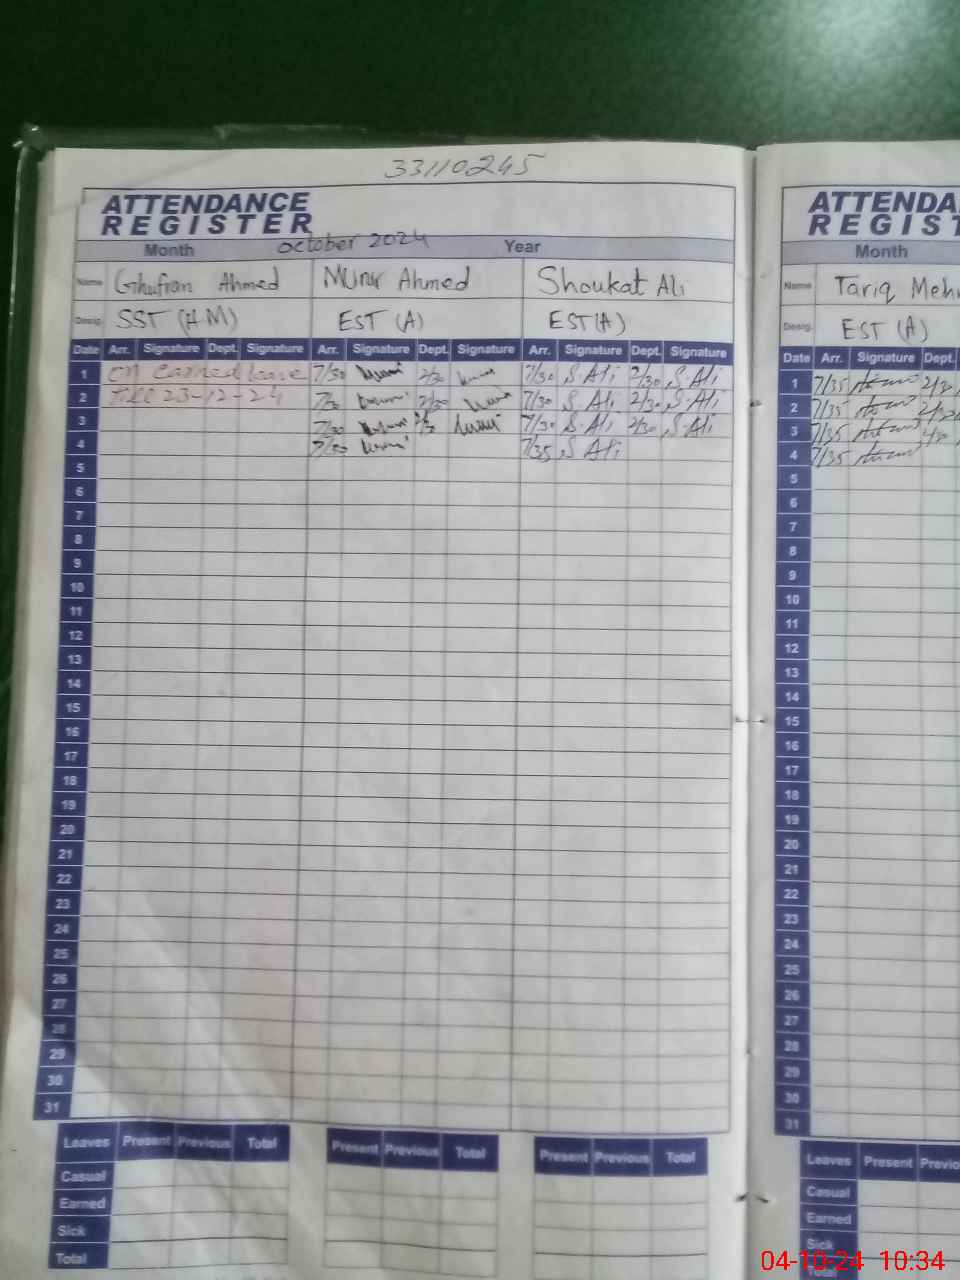 33110245
ATTENDANCE
REGISTER
Month October 2024 Year
Name Ghufran Ahmed Munir Ahmed Shoukat Ali
Desig. SST (H.M) EST (A) EST (A)
Date Arr. Signature Dept. Signature Arr. Signature Dept. Signature Arr. Signature Dept. Signature
1 on earned leave 7/30 2/30 7/30 S Ali 2/30 S. Ali
2 23-12-24 7/30 2/30 7/30 S Ali 2/30 S. Ali
3 7/30 2/30 7/30 S. Ali 2/30 S. Ali
4 7/30 7/35 S Ali
5
6
7
8
9
10
11
12
13
14
15
16
17
18
19
20
21
22
23
24
25
26
27
28
29
30
31
Leaves Present Previous Total Present Previous Total Present Previous Total
Casual
Earned
Sick
Total
ATTENDA
REGIST
Month
Name Tariq Meh
Desig. EST (A)
Date Arr. Signature Dept.
1 7/35 2/30
2 7/35 2/30
3 7/35 2/30
4 7/35
5
6
7
8
9
10
11
12
13
14
15
16
17
18
19
20
21
22
23
24
25
26
27
28
29
30
31
Leaves Present Previo
Casual
Earned
Sick
Total
04-10-24 10:34